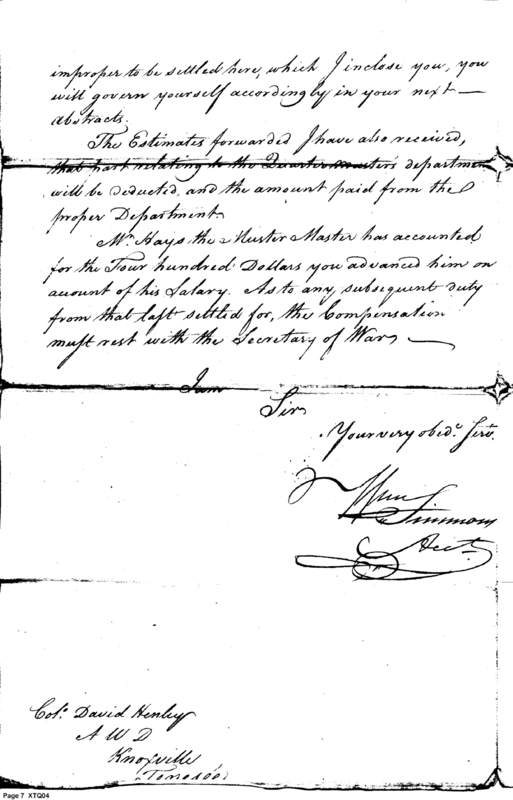 improper to be settled here, which I inclose you, you
will govern yourself accordingly in your next —
abstracts.
The Estimates forwarded I have also received,
that part relating to the Quartermaster's department
will be deducted, and the amount paid from the
proper Department
Mr. Hays the Muster Master has accounted
for the Four hundred Dollars you advanced him on
account of his Salary. As to any subsequent duty
from that last settled for, the Compensation
must rest with the Secretary of War —
I am
Sir
Your very obedt. Servt.
Wm Simmons
Acct.
Colo. David Henley
A W D
Knoxville
Page 7 XTQ04